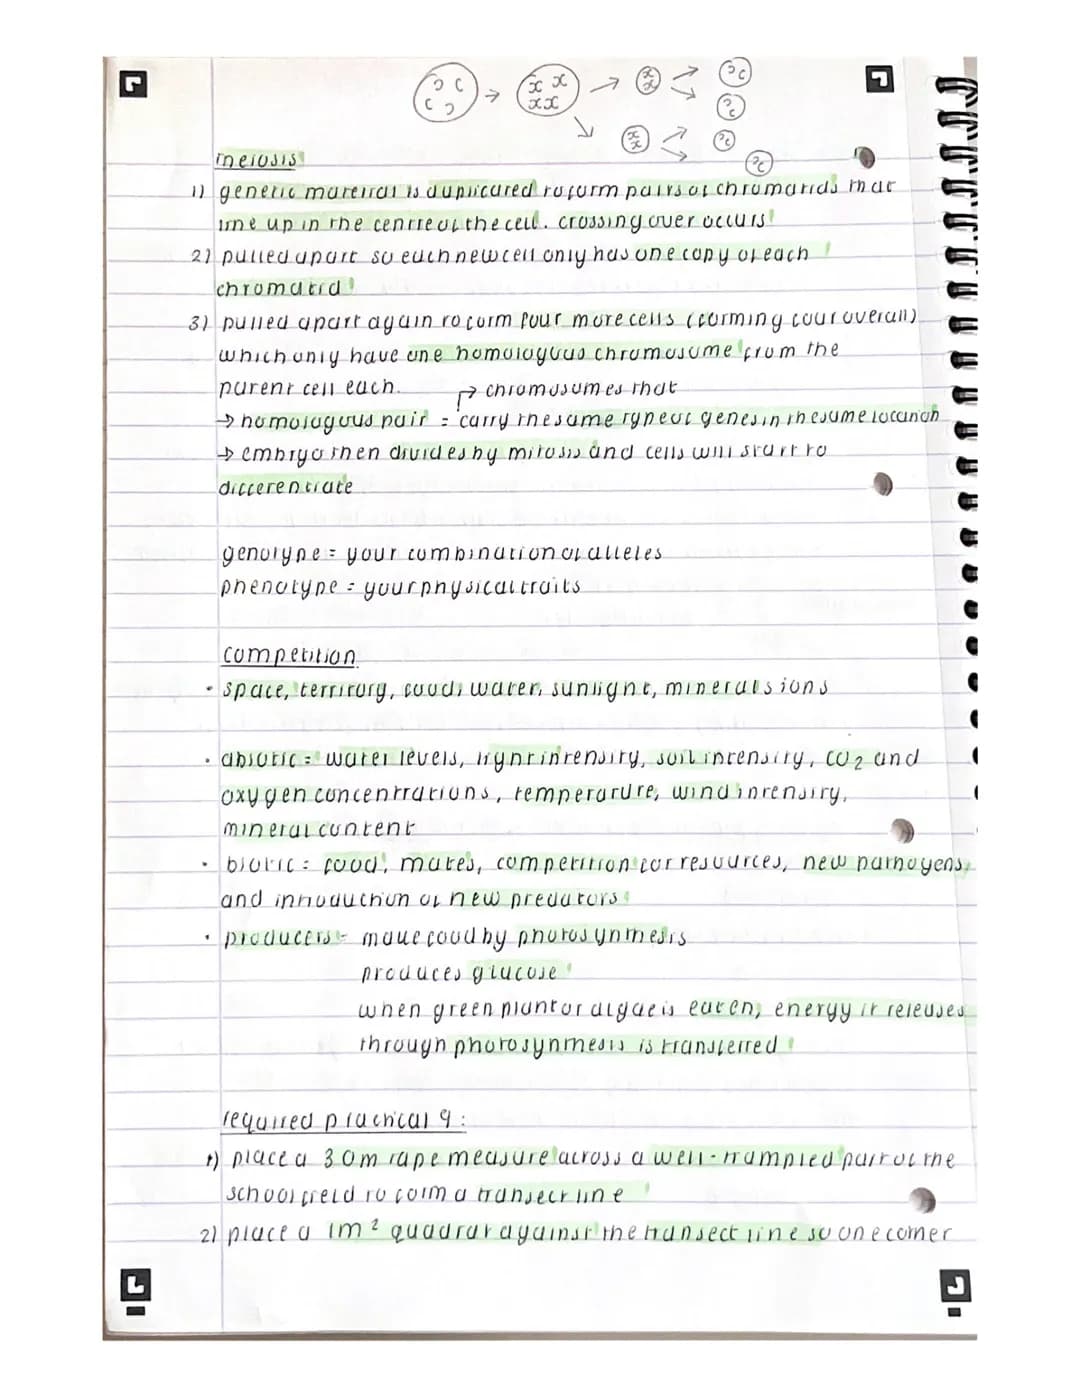 meiosis
1) genetic material is duplicated to form pairs of chromatids that
line up in the centre of the cell. crossing over occurs
2) pulled apart so each new cell only has one copy of each
chromatid
3) pulled apart again to form four more cells (forming four overall)
which only have one homologous chromosome from the
parent cell each.
→ chromosomes that
→ homologous pair = carry the same type of genes in the same location
→ embryo then divides by mitosis and cells will start to
differentiate
genotype = your combination of alleles
phenotype = your physical traits
competition
• space, territory, food, water, sunlight, minerals ions
• abiotic = water levels, light intensity, soil intensity, CO2 and
oxygen concentrations, temperature, wind intensity,
mineral content
• biotic = food, mates, competition for resources, new pathogens,
and introduction of new predators
• producers - make food by photosynthesis
produces glucose
when green plant or algae is eaten, energy it releases
through photosynthesis is transferred
required practical 9:
1) place a 30m tape measure across a well-trampled part of the
school field to form a transect line
2) place a 1m² quadrat against the transect line so one corner